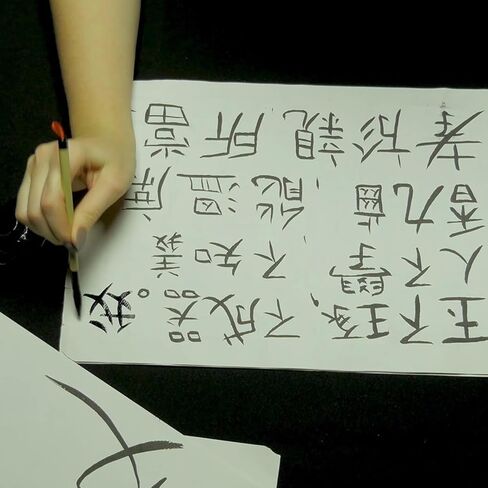 玉不琢、不成器。
人不學不知義
香九齡能溫席
孝於親所當